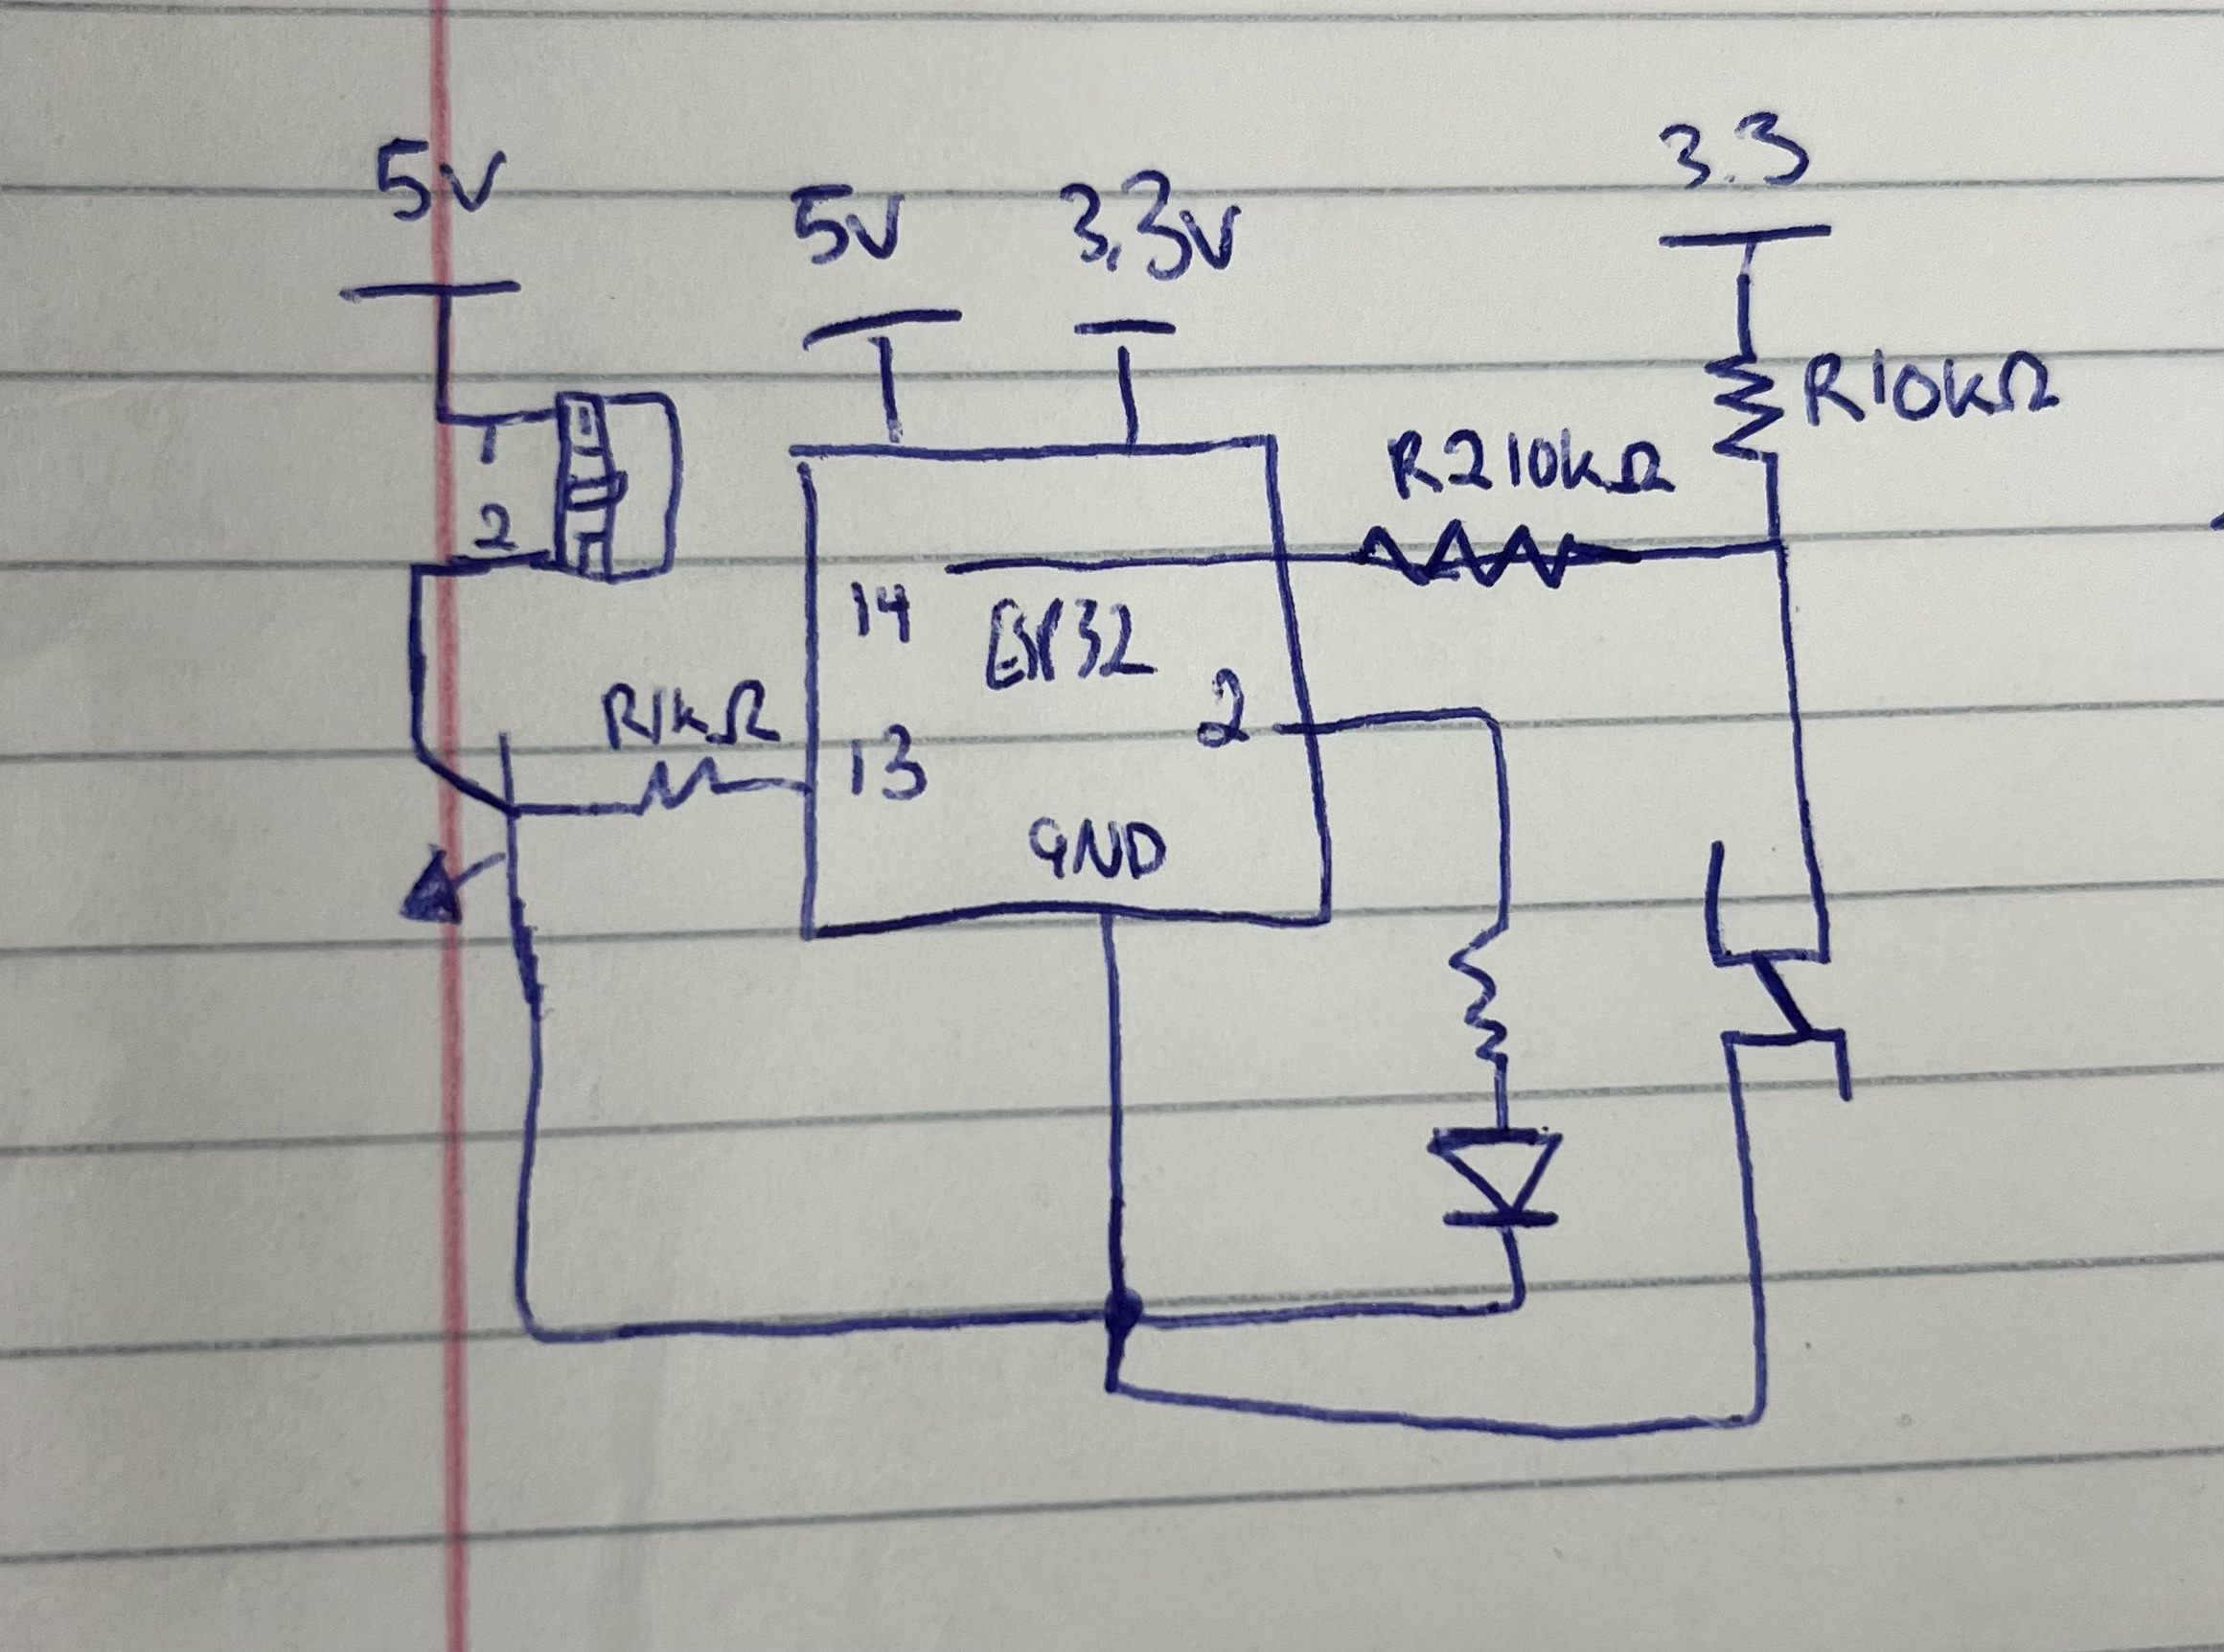 5V
5V
3.3V
3.3
1
2
R10kΩ
R210kΩ
14
ESP32
R1kΩ
13
2
GND